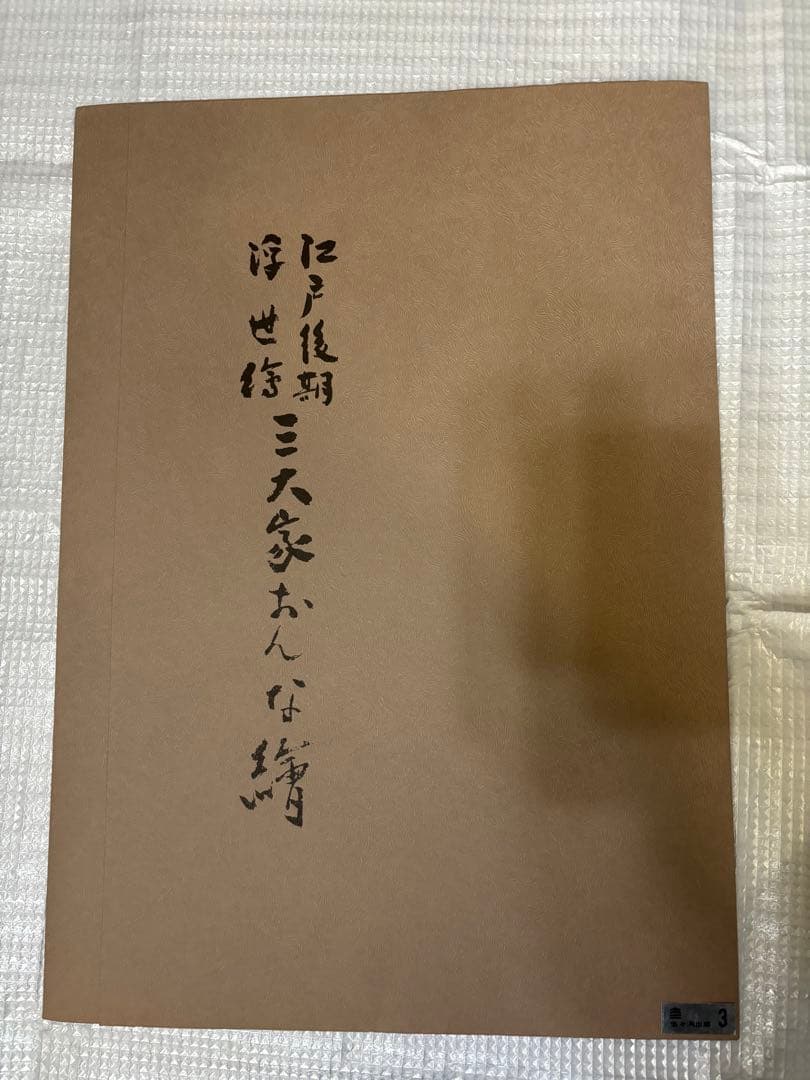 江戸後期
浮世絵
三大家おんな繪
3